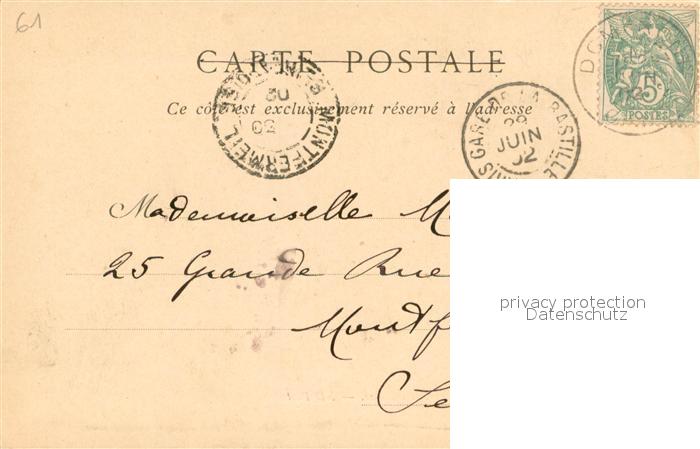 61
CARTE POSTALE
Ce côté est exclusivement réservé à l'adresse
MONTFERMEIL
30
02
PARIS GARE DE LA BASTILLE
29
JUIN
02
5c
POSTES
Mademoiselle M
25 Grande Rue
Montf
Se
privacy protection
Datenschutz